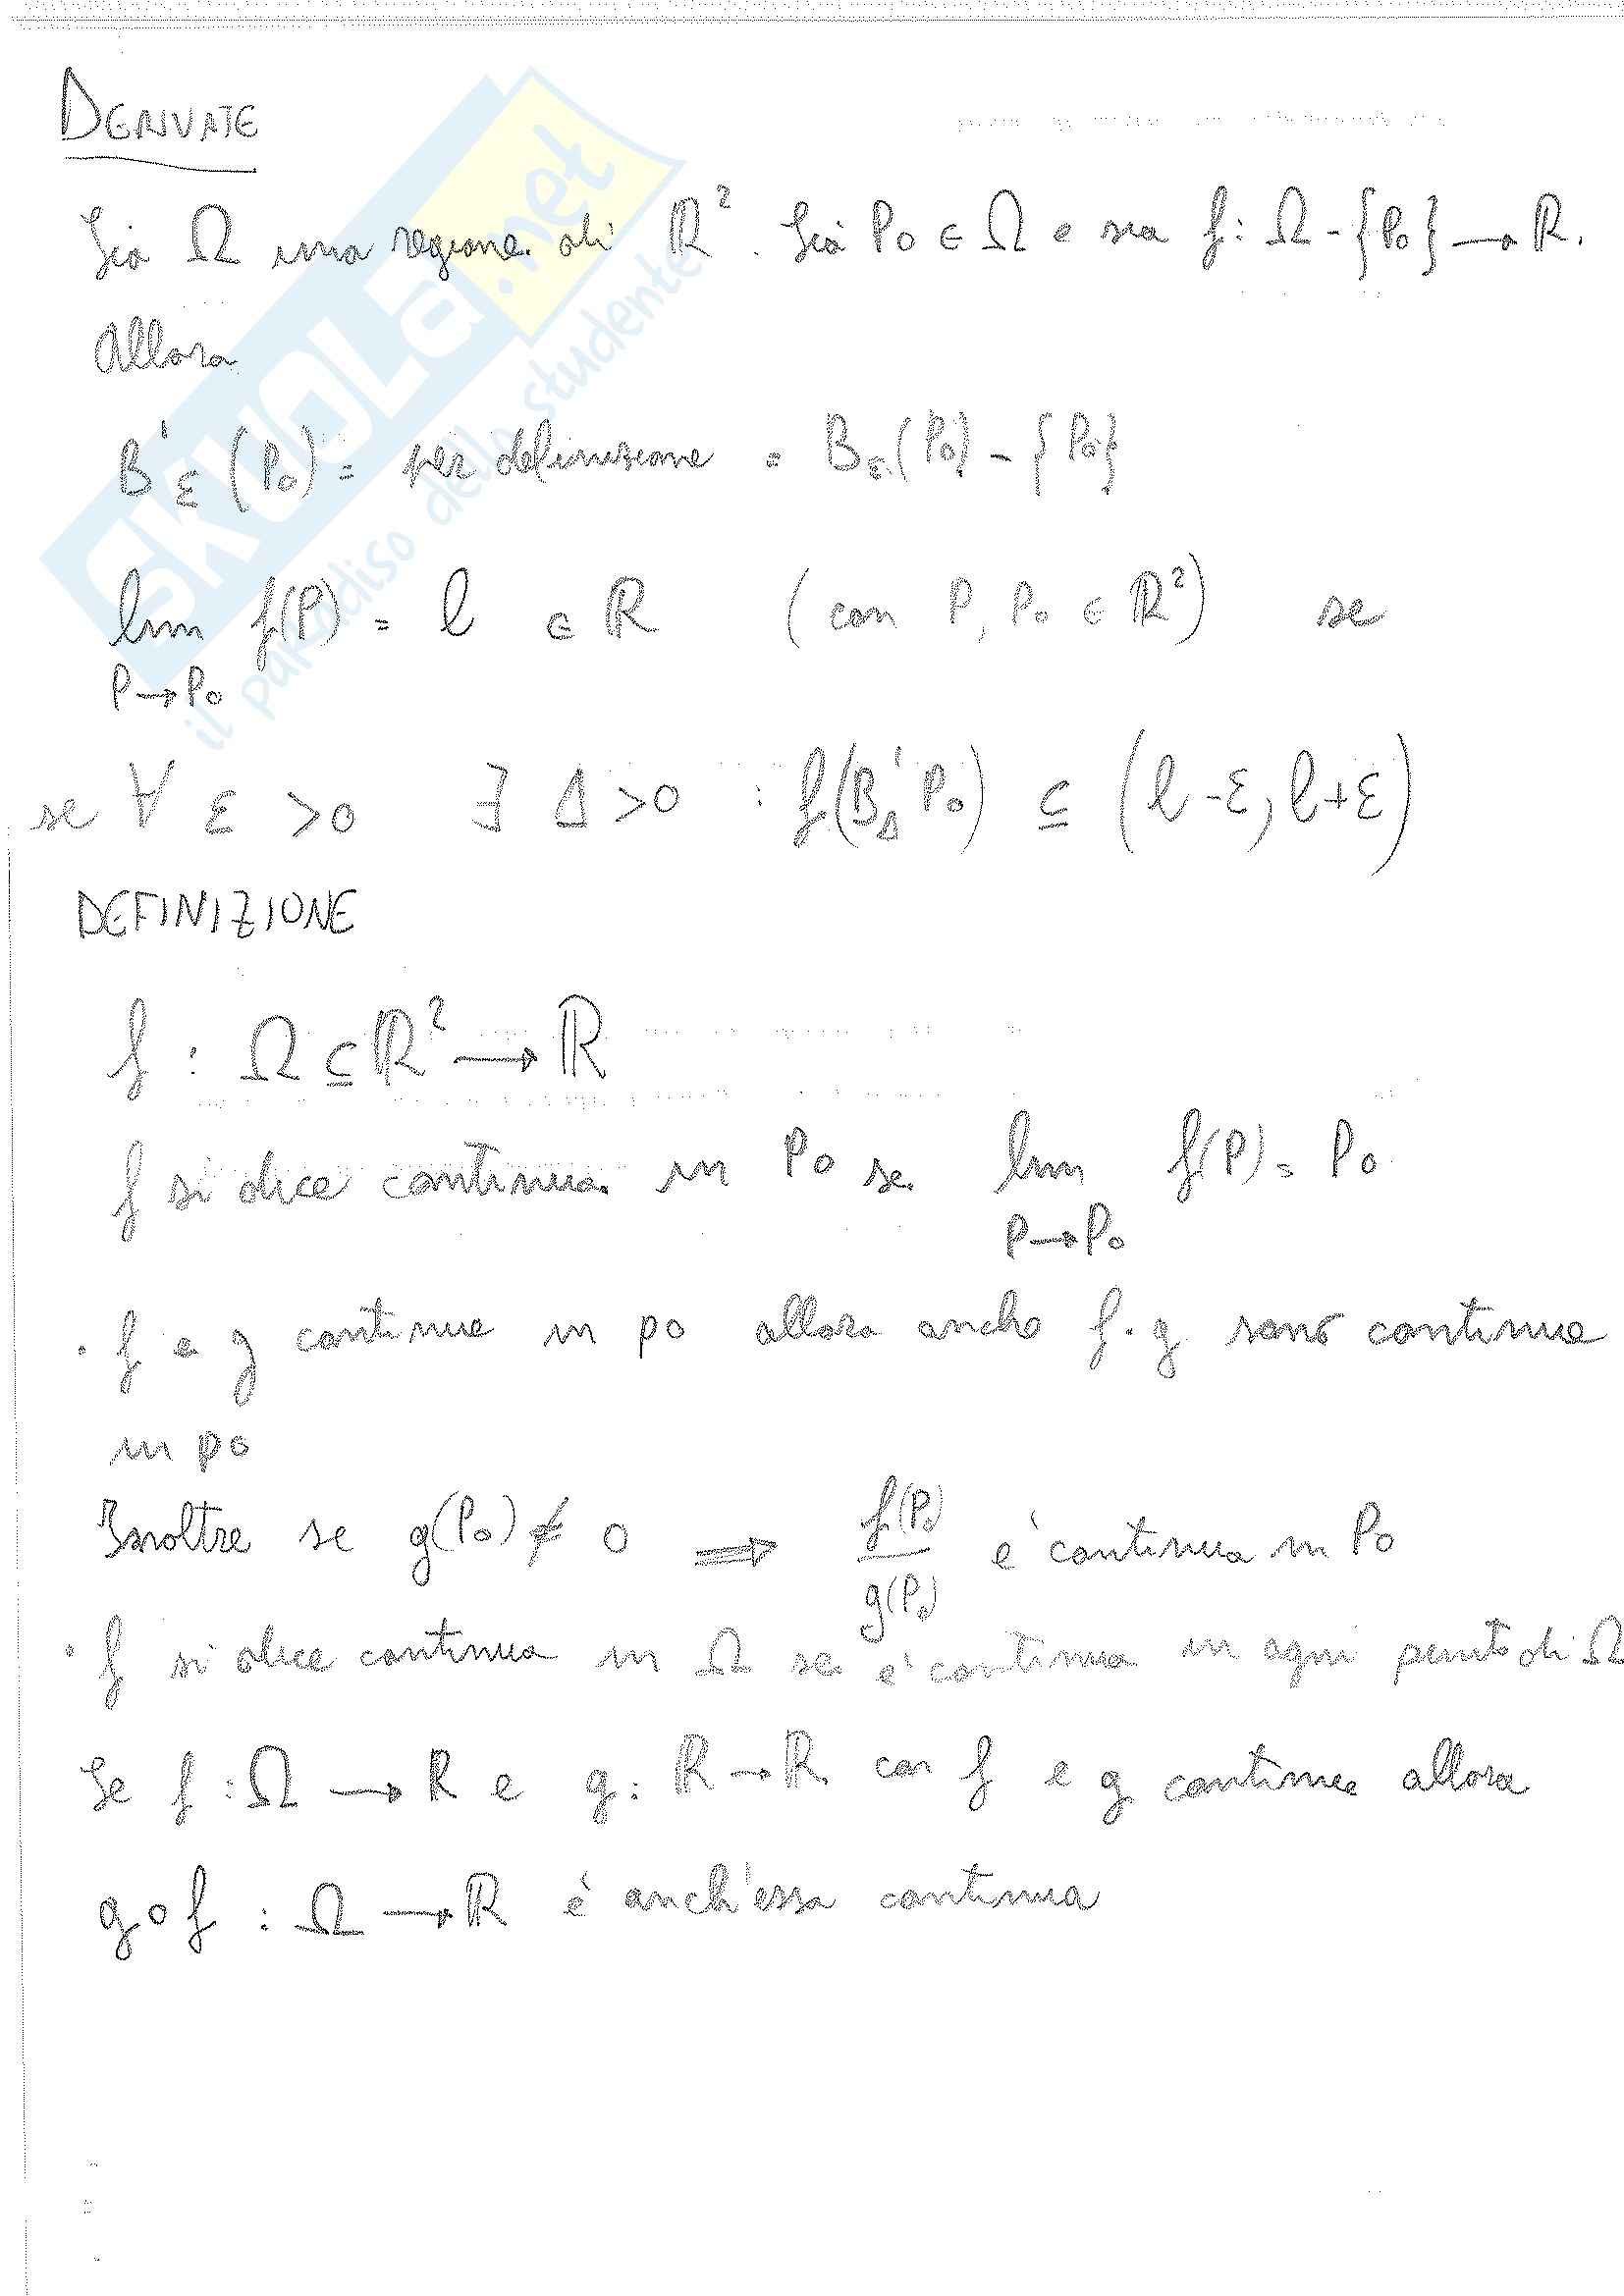 DERIVATE
Sia Ω una regione di ℝ². Sia P₀ ∈ Ω e sia f: Ω - {P₀} → ℝ.
Allora
B'ε (P₀) = per definizione = Bε (P₀) - {P₀}
lim f(P) = l ∈ ℝ (con P, P₀ ∈ ℝ²) se
P→P₀
se ∀ ε >0 ∃ Δ >0 : f(B'Δ P₀) ⊆ (l-ε, l+ε)
DEFINIZIONE
f : Ω ⊆ ℝ² → ℝ
f si dice continua in P₀ se lim f(P) = P₀
P→P₀
· f e g continue in p₀ allora anche f·g sono continue
in p₀
Inoltre se g(P₀) ≠ 0 ⟹ f(P₀)/g(P₀) è continua in P₀
· f si dice continua in Ω se è continua in ogni punto di Ω
Se f : Ω → ℝ e g : ℝ → ℝ con f e g continue allora
g∘f : Ω → ℝ è anch'essa continua
SKUOLA.net
il paradiso dello studente